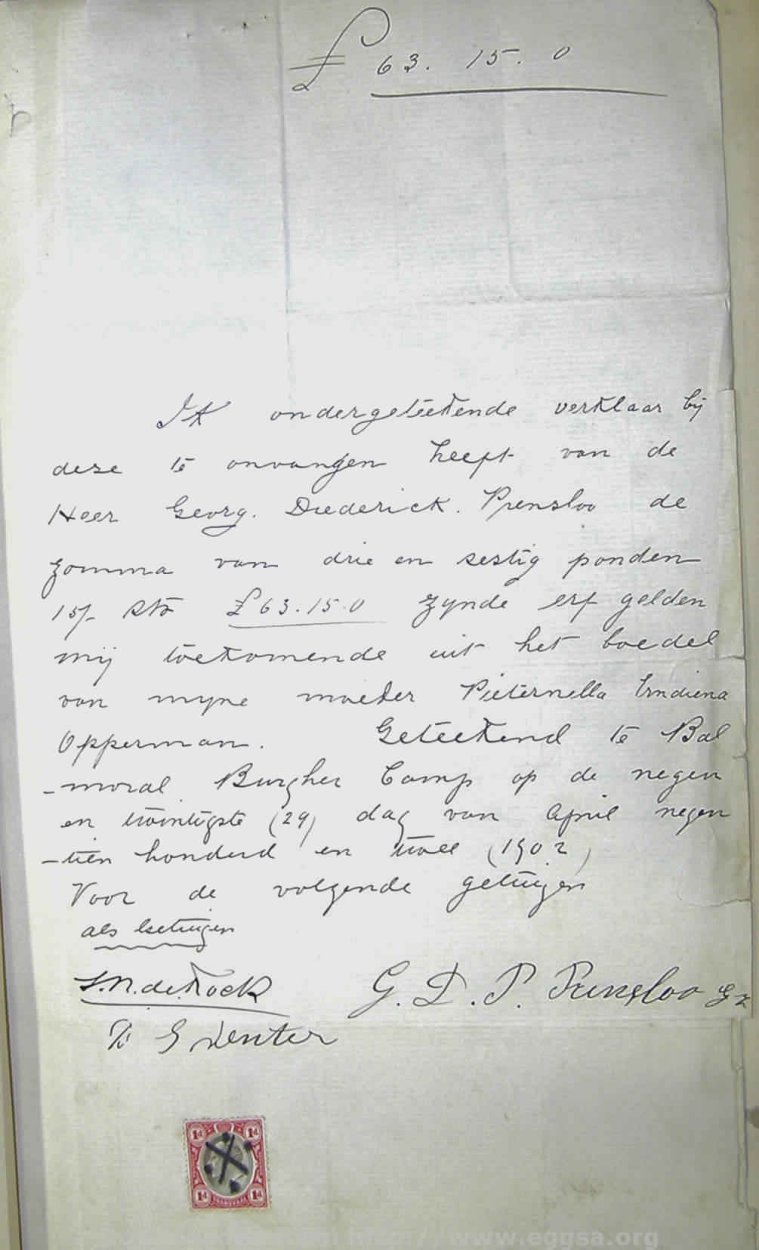 £ 63. 15. 0
Ik ondergeteekende verklaar bij
deze te onvangen heeft van de
Heer Georg. Diederick. Prensloo de
zomma van drie en sestig ponden
15/- Stg £63.15.0 zynde erf gelden
mij toekomende uit het boedel
van myne moeder Pieternella
Opperman. Geteekend te Bal
-moral Burgher Camp op de negen
en twintigste (29) dag van April negen
-tien honderd en twee (1902)
Voor de volgende getuigen
als Getuigen
S.N. de Kock G. D. P. Prensloo
Venter
1d 1d
1d 1d
www.eggsa.org